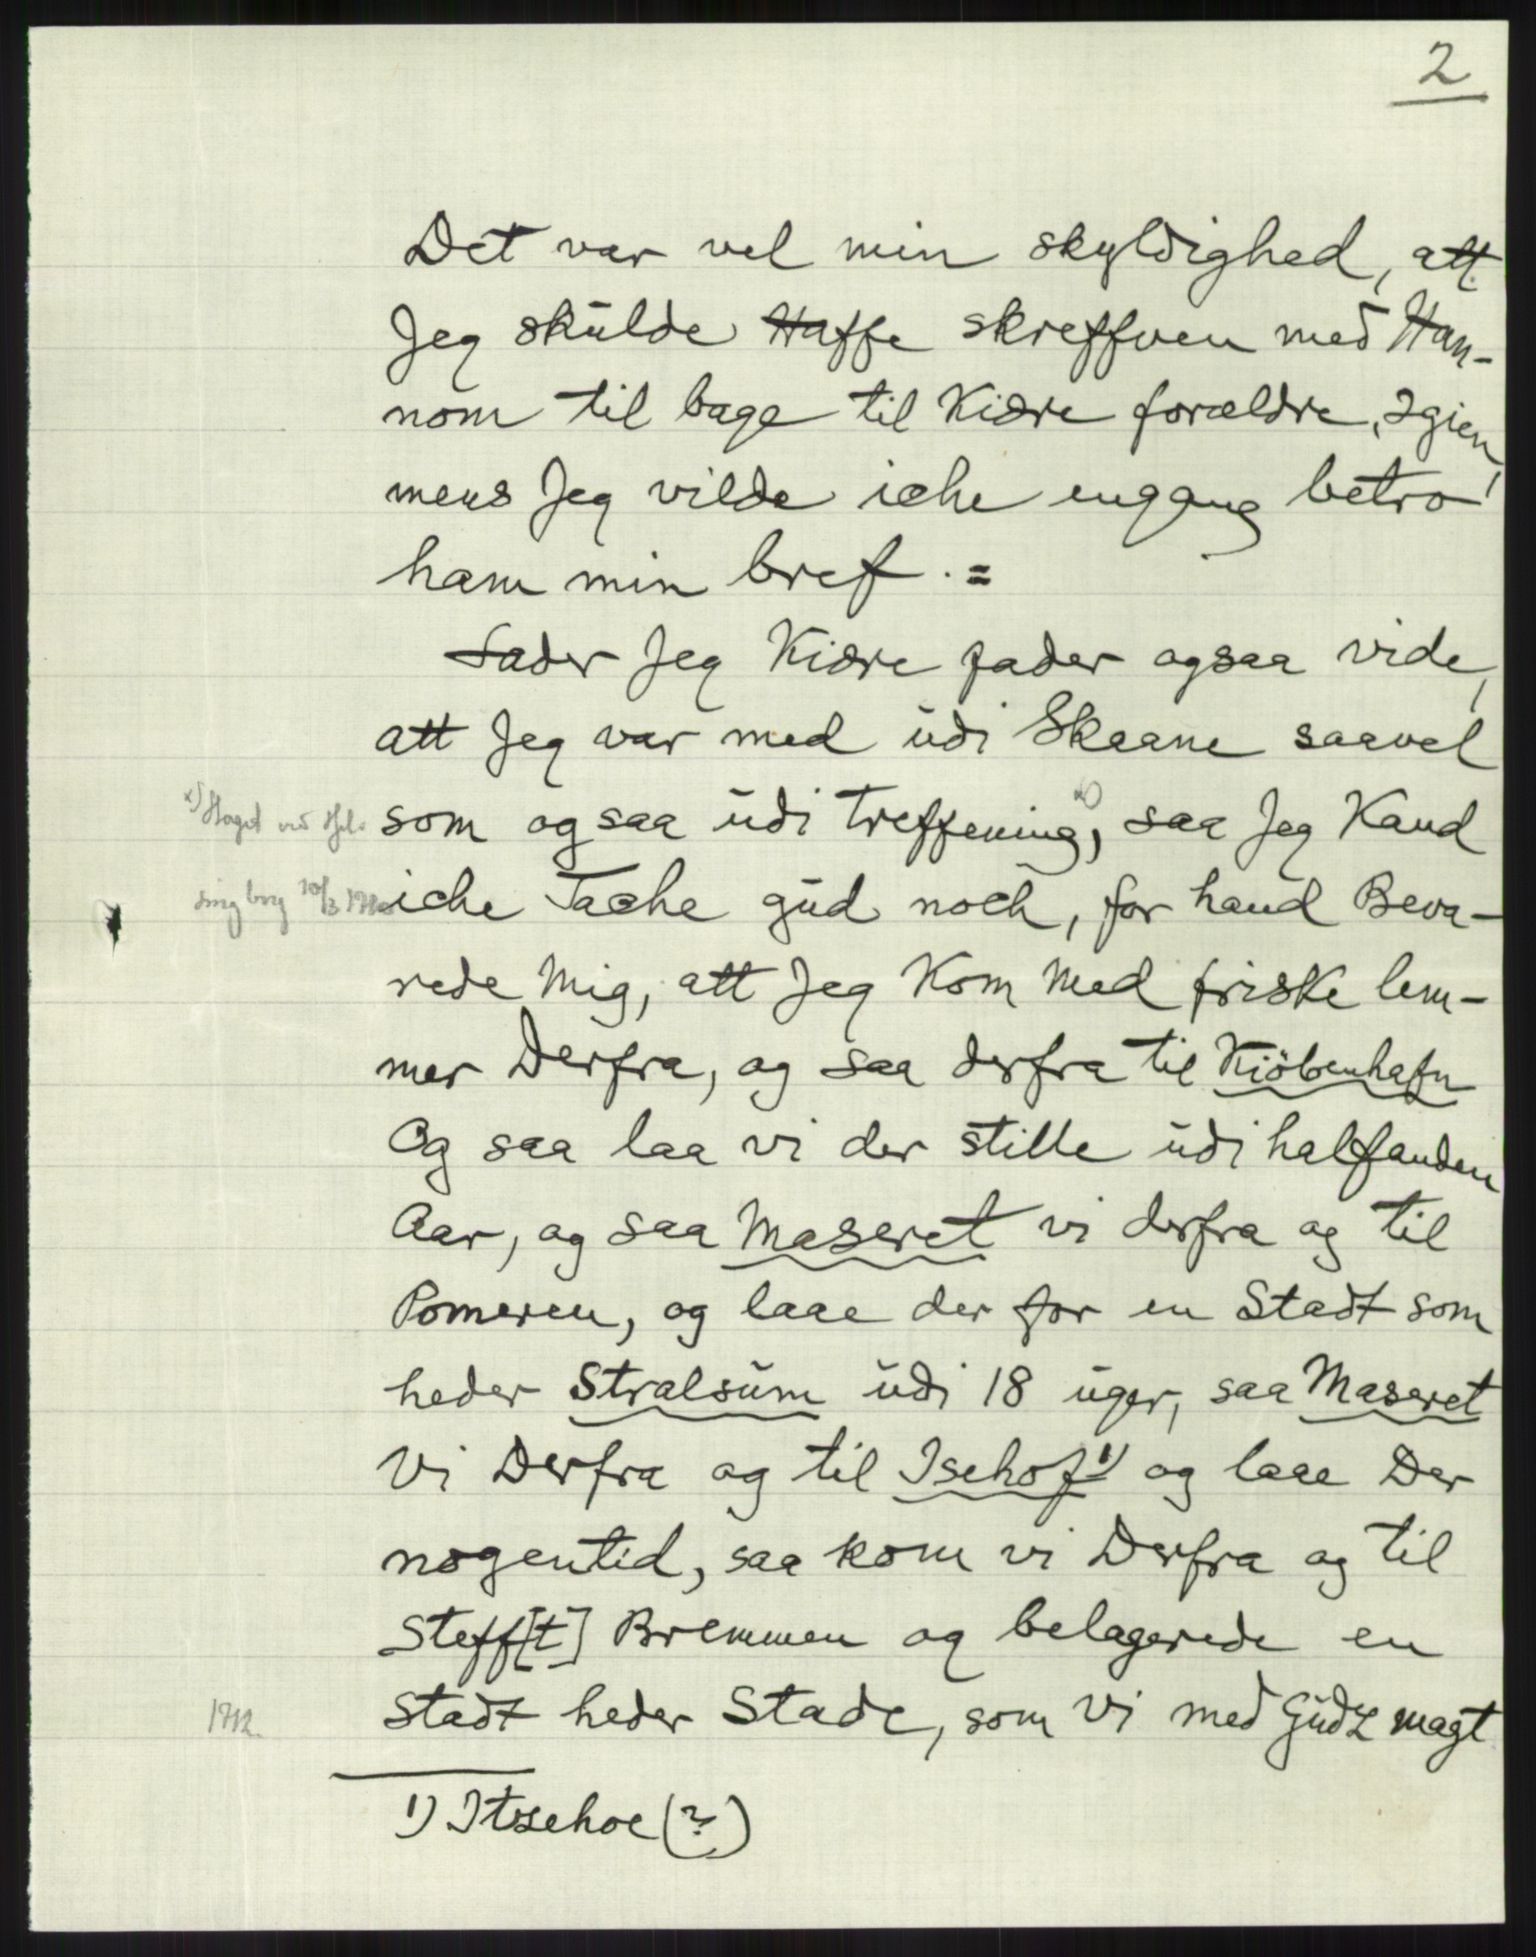 2
Det var vel min skyldighed, att
Jeg skŭlde Haffe skreffven med Han-
nom til bage til Kiære forældre, Igien,
mens Jeg vilde iche engang betro
ham min bref. =
Lader Jeg Kiære fader ogsaa vide,
att Jeg var med ŭdi Skaane saavel
x) Slaget ved Hel- som ogsaa ŭdi treffening x), saa Jeg Kand
singborg 10/3 1710 iche Tache gŭd noch, for hand Beva-
rede Mig, att Jeg Kom Med friske lem-
mer Derfra, og saa derfra til Kiöbenhafn
Og saa laa vi der stille ŭdi halfanden
Aar, og saa Maseret vi derfra og til
Pomeren, og laae der for en Stadt som
heder Stralsŭm ŭdi 18 ŭger, saa Maseret
Vi Derfra og til Isehof 1) og laae Der
nogentid, saa kom vi Derfra og til
Steff[t] Bremmen og belagerede en
1712. Stadt heder Stade, som Vi med Gŭdz magt
1) Itzehoe (?)